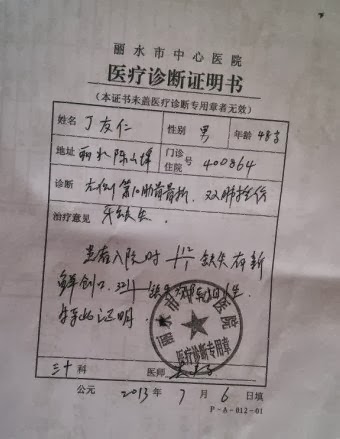 丽水市中心医院
医疗诊断证明书
(本证书未盖医疗诊断专用章者无效)
姓名 丁友仁 性别 男 年龄 48岁
地址 丽水 陈 门诊住院号 400864
诊断 左侧第10肋骨骨折，双肺挫伤
治疗意见 牙缺失
患者入院时 缺失有新
鲜创口
特此证明
丽水市中心医院
医疗诊断专用章
科 医师
公元 2013 年 7 月 6 日填
P-A-012-01